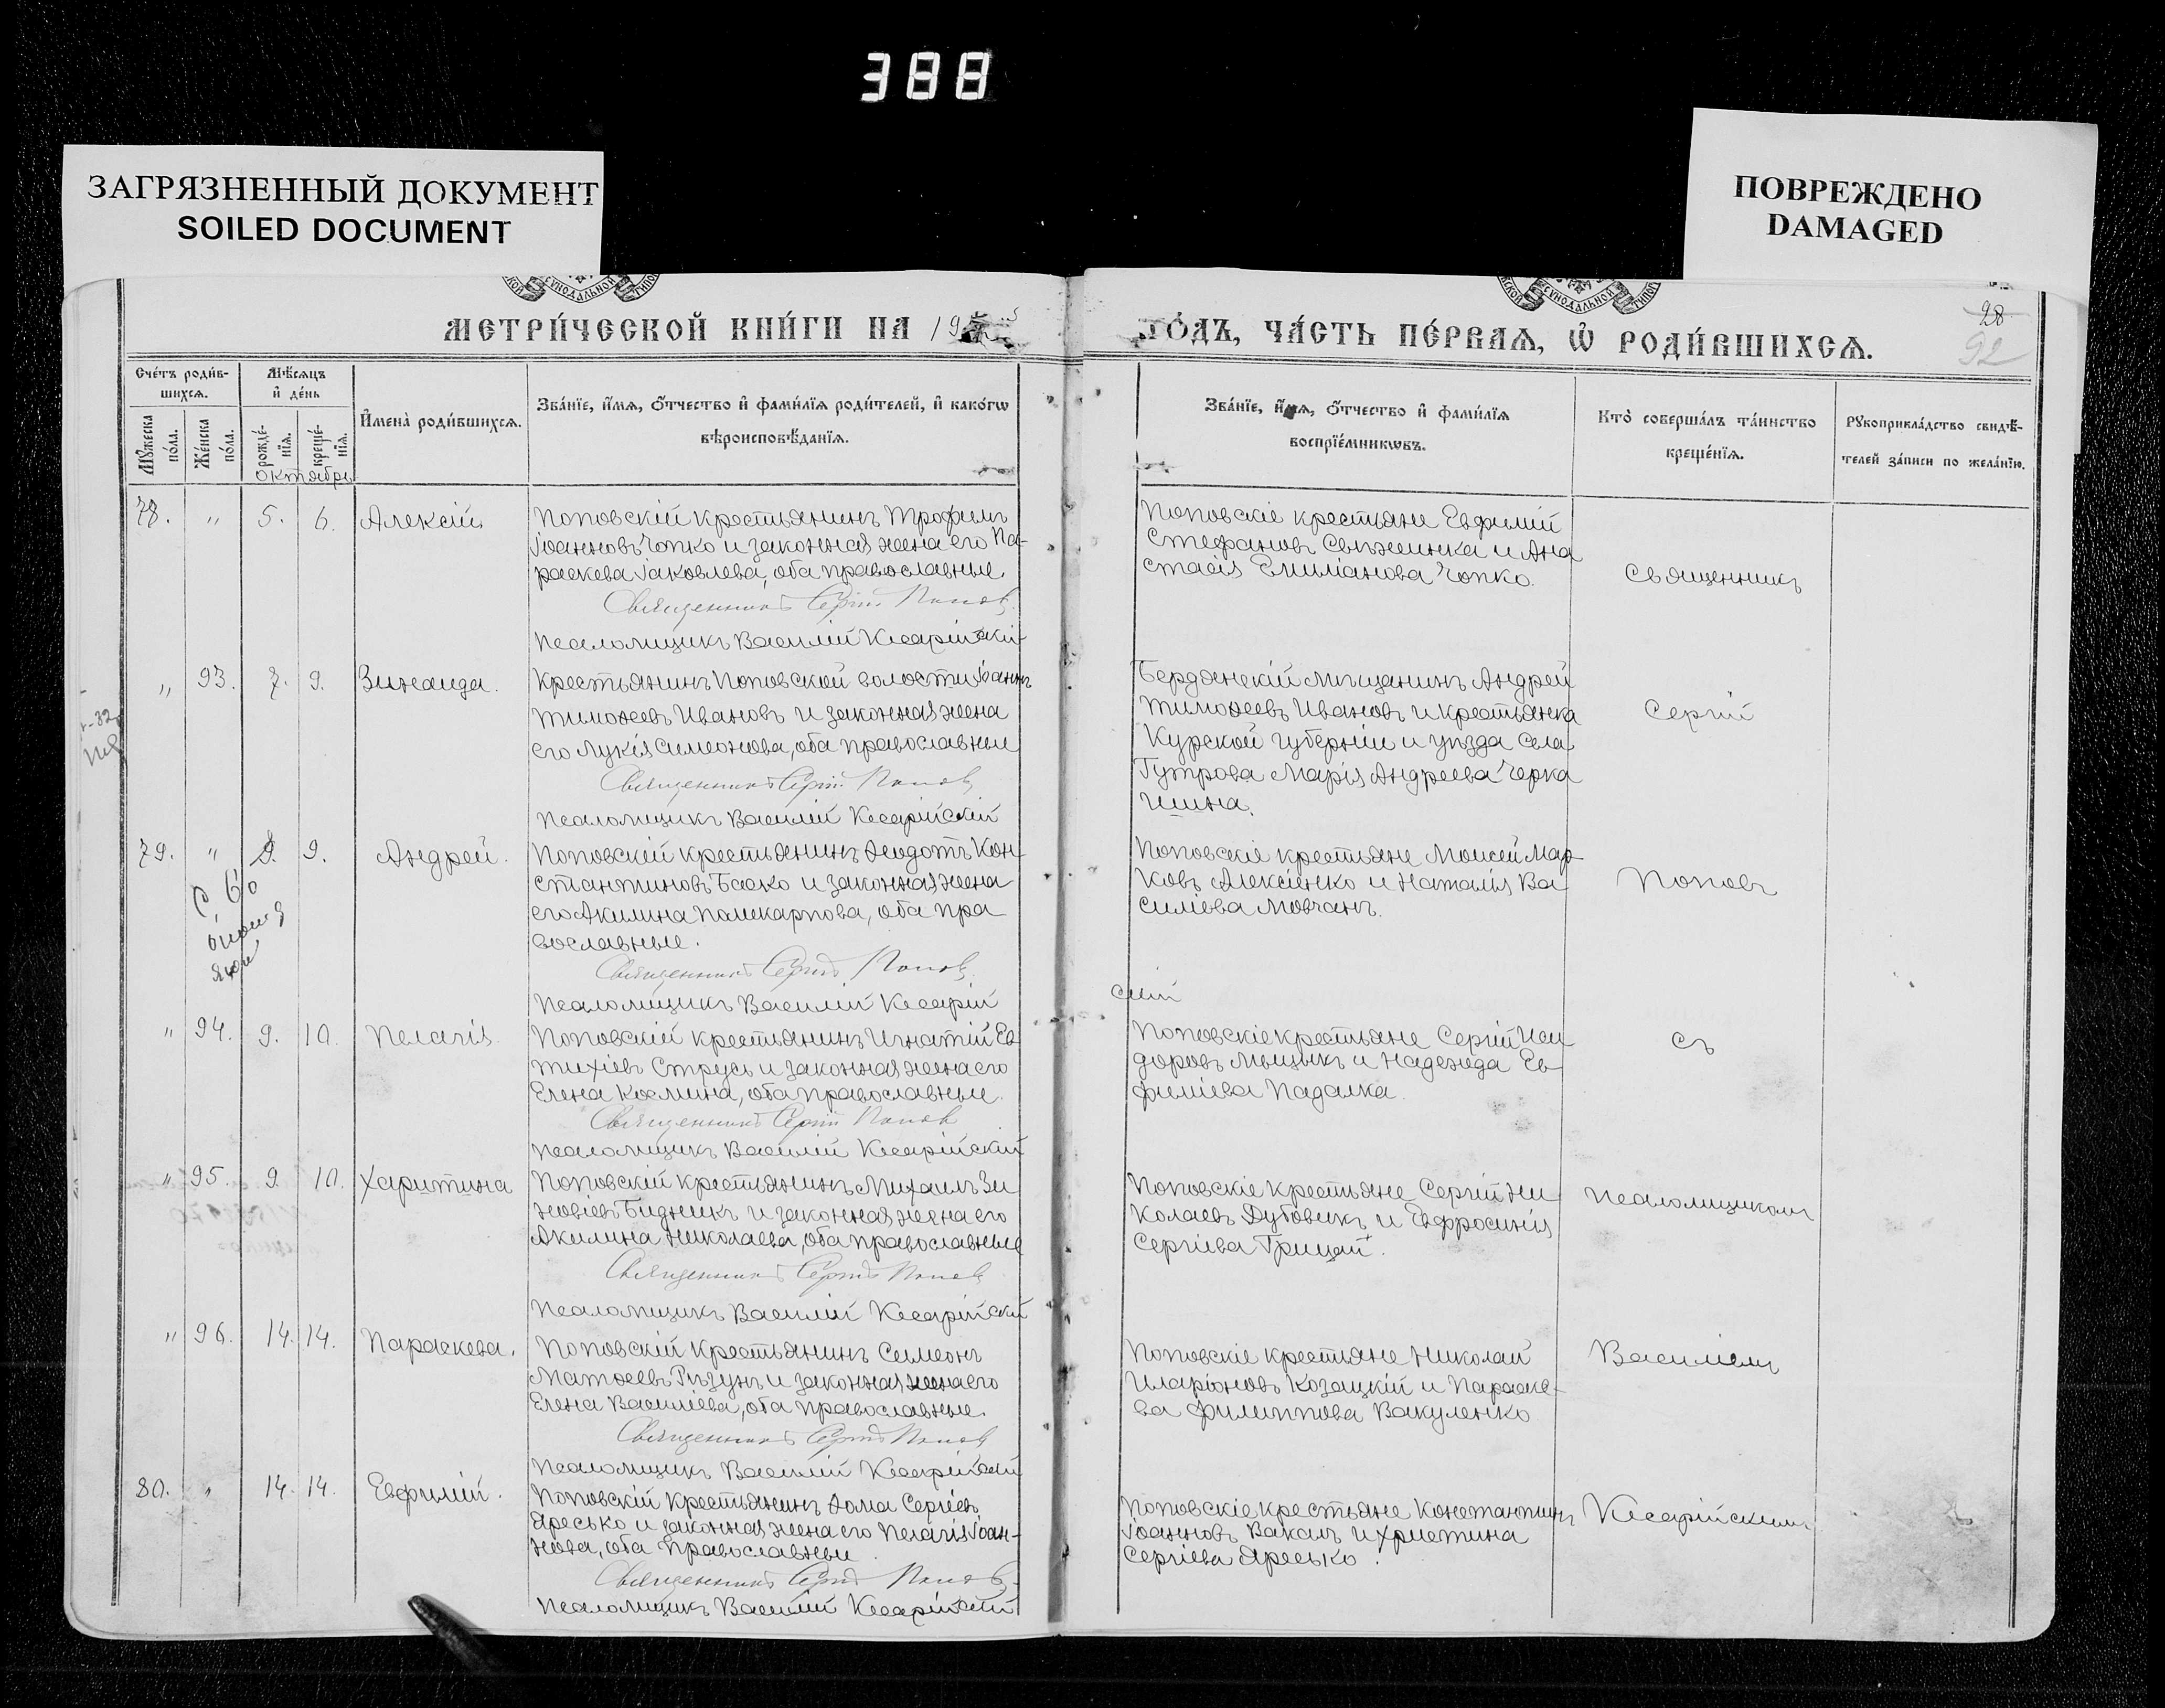 388
ЗАГРЯЗНЕННЫЙ ДОКУМЕНТ
SOILED DOCUMENT
ПОВРЕЖДЕНО
DAMAGED
МЕТРИ́ЧЕСКОЙ КНИ́ГИ НА 19
ГО́ДЪ, ЧА́СТЬ ПЕ́РВАѦ, Ѽ РОДИ́ВШИХСѦ.
28
92
Сче́тъ роди́в-
шихсѧ.
Мѣ́сѧцъ
и҆ де́нь
Мꙋ́жеска
по́ла.
Же́нска
по́ла.
рожде́-
нїѧ.
креще́-
нїѧ.
И҆мена̀ роди́вшихсѧ.
Зва́нїе, и҆́мѧ, ѻ҆́тчество и҆ фами́лїѧ роди́телей, и҆ како́гѡ
вѣроисповѣ́данїѧ.
Зва́нїе, и҆́мѧ, ѻ҆́тчество и҆ фами́лїѧ
воспрїе́мникѡвъ.
Кто̀ соверша́лъ та́инство
креще́нїѧ.
Рꙋкоприкла́дство свидѣ́-
телей за́писи по жела́нїю.
октябрь
78. " 5. 6. Алексій
Поповскій крестьянинъ Трофимъ
Іоанновъ Чопко и законная жена его Па-
раскева Іаковлева, оба православные.
Священникъ Сергій Поповъ
Псаломщикъ Василій Кесарійскій
Поповскіе крестьяне Евфимій
Стефановъ Свѣжинка и Ана
стасія Емиліанова Чопко.
Священникъ
" 93. 7. 9. Зинаида.
Крестьянинъ Поповской волости Іоаннъ
Тимоѳеевъ Ивановъ и законная жена
его Лукія Симеонова, оба православные
Священникъ Сергій Поповъ
Псаломщикъ Василій Кесарійскій
Бердянскій мѣщанинъ Андрей
Тимоѳеевъ Ивановъ и крестьянка
Курской губерніи и уѣзда села
Гутрова Марія Андреева Черка
шина.
Сергій
79. " 9. 9. Андрей.
Поповскій крестьянинъ Ѳеодотъ Кон-
стантиновъ Баско и законная жена
его Акилина Поликарпова, оба пра
вославные.
Священникъ Сергій Поповъ
Псаломщикъ Василій Кесарій
скій
Поповскіе крестьяне Моисей Мар-
ковъ Алексіенко и Наталія Ва
силіева Мовчанъ.
Поповъ
" 94. 9. 10. Пелагія
Поповскій крестьянинъ Игнатій Ев
тихіевъ Струсь и законная жена его
Елена Космина, оба православные.
Священникъ Сергій Поповъ
Псаломщикъ Василій Кесарійскій
Поповскіе крестьяне Сергій Иси
доровъ Мыцикъ и Надежда Ев
фиміева Падалка
съ
" 95. 9. 10. Харитина
Поповскій крестьянинъ Михаилъ Зи
новіевъ Бидникъ и законная жена его
Акилина Николаева, оба православные
Священникъ Сергій Поповъ
Псаломщикъ Василій Кесарійскій
Поповскіе крестьяне Сергій Ни
колаевъ Дубовикъ и Евфросинія
Сергіева Грицай.
Псаломщикомъ
" 96. 14. 14. Параскева.
Поповскій крестьянинъ Симеонъ
Матѳеевъ Рѣзунъ и законная жена его
Елена Василіева, оба православные.
Священникъ Сергій Поповъ
Псаломщикъ Василій Кесарійскій
Поповскіе крестьяне Николай
Иларіоновъ Козацкій и Параске-
ва Филиппова Вакуленко
Василіемъ
80. " 14. 14. Евфимій.
Поповскій крестьянинъ Ѳома Сергіевъ
Яресько и законная жена его Пелагія Іоан-
нова, оба православные
Священникъ Сергій Поповъ
Псаломщикъ Василій Кесарійскій
Поповскіе крестьяне Константинъ
Іоанновъ Вакалъ и Христина
Сергіева Яресько.
Кесарійскимъ